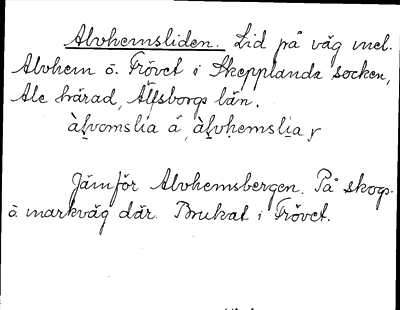 Alvhemsliden. Lid på väg mel.
Alvhem o. Frövet i Skepplanda socken,
Ale härad, Älfsborgs län.
àļvomslia å, àļvhemslia,
Jämför Alvhemsbergen. På skogs-
o. markväg där. Brukat i Frövet.